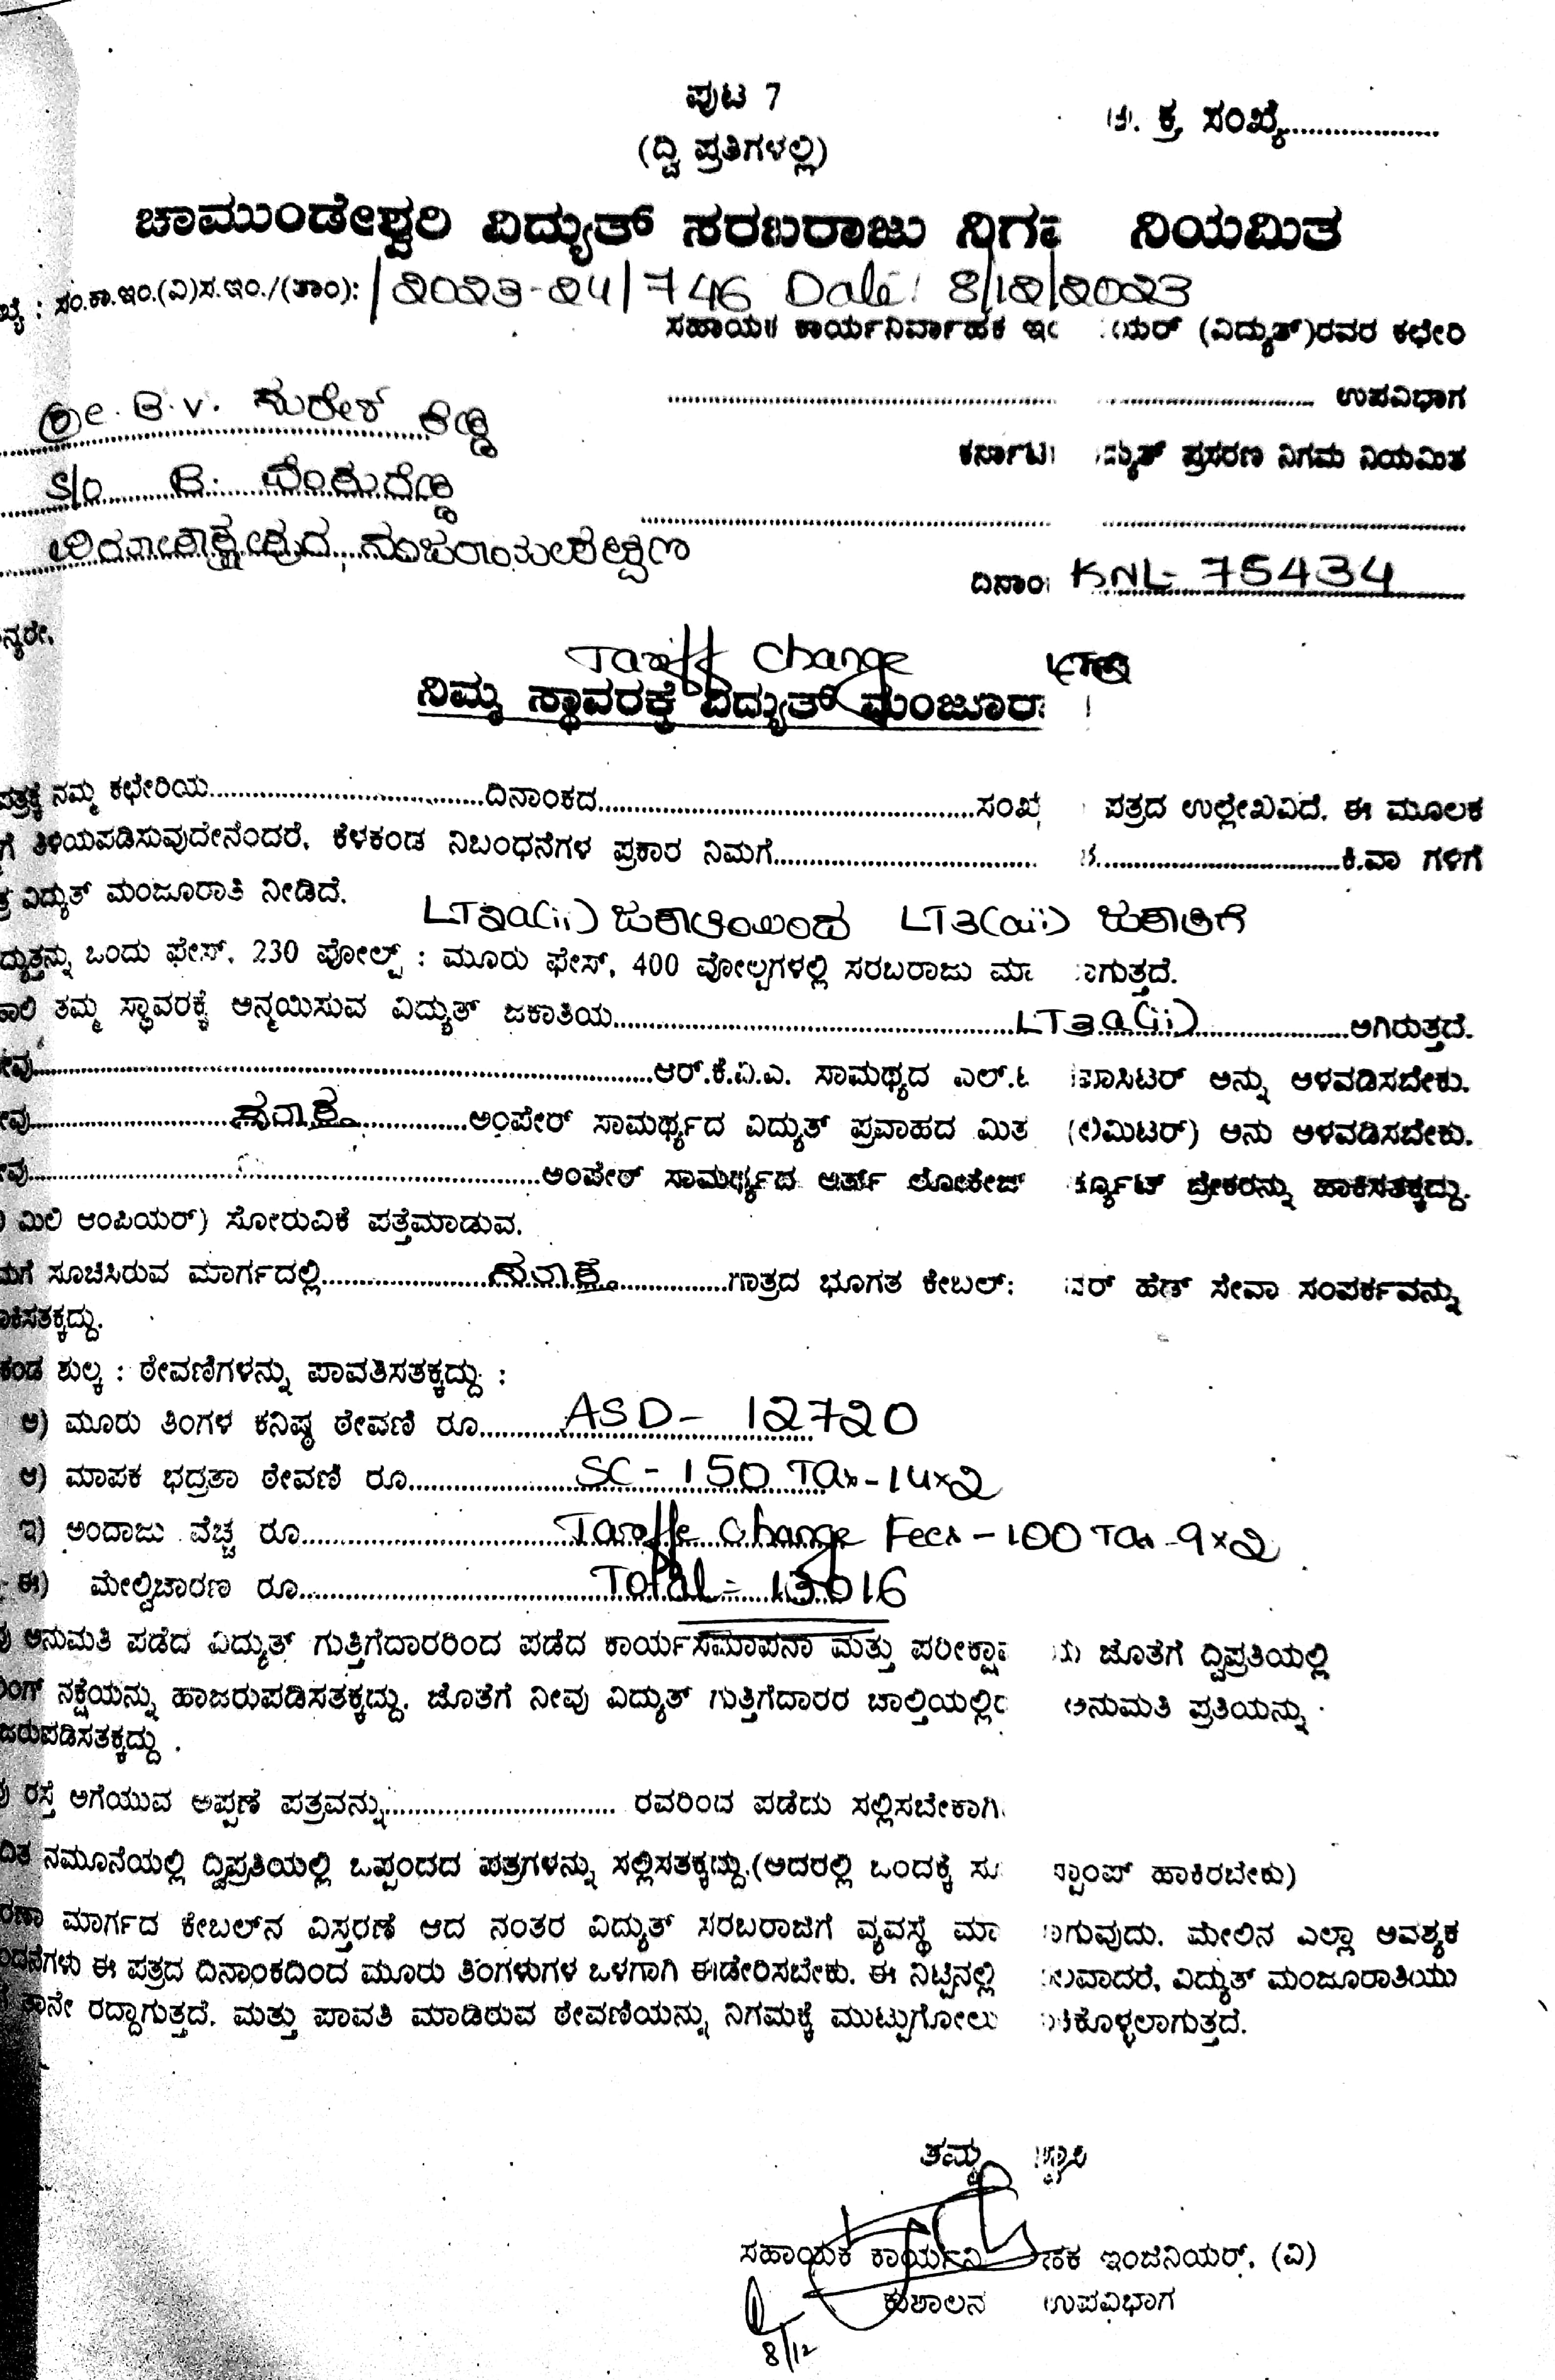 ಪುಟ 7
ಕ್ರ ಸಂಖ್ಯೆ....................
(ದ್ವಿ ಪ್ರತಿಗಳಲ್ಲಿ)
ಚಾಮುಂಡೇಶ್ವರಿ ವಿದ್ಯುತ್ ಸರಬರಾಜು ನಿಗ ನಿಯಮಿತ
: ಸಂ.ಕಾ.ಇಂ.(ವಿ)ಸ.ಇಂ./(ತಾಂ): /2023-24/746 Date: 8/12/2023
ಸಹಾಯಕ ಕಾರ್ಯನಿರ್ವಾಹಕ ಇಂ ಯರ್ (ವಿದ್ಯುತ್)ರವರ ಕಛೇರಿ
B.V. ಸುರೇಶ್
.................... ಉಪವಿಭಾಗ
ಕರ್ನಾಟ ದ್ಯುತ್ ಪ್ರಸರಣ ನಿಗಮ ನಿಯಮಿತ
S/O B.
ದಿನಾಂ KNL- 75434
ನ್ಯರೇ,
Tariff Change
ನಿಮ್ಮ ಸ್ಥಾವರಕ್ಕೆ ವಿದ್ಯುತ್ ಮಂಜೂರಾ
ಪತ್ರಕ್ಕೆ ನಮ್ಮ ಕಛೇರಿಯ....................ದಿನಾಂಕದ....................ಸಂಖ್ಯೆ ಪತ್ರದ ಉಲ್ಲೇಖವಿದೆ. ಈ ಮೂಲಕ
ಗೆ ತಿಳಿಯಪಡಿಸುವುದೇನೆಂದರೆ, ಕೆಳಕಂಡ ನಿಬಂಧನೆಗಳ ಪ್ರಕಾರ ನಿಮಗೆ.................... ....................ಕಿ.ವಾ ಗಳಿಗೆ
ವಿದ್ಯುತ್ ಮಂಜೂರಾತಿ ನೀಡಿದೆ.
LT2a(ii) ಜಕಾತಿಯಿಂದ LT3(aii) ಜಕಾತಿಗೆ
ದ್ಯುತ್ತನ್ನು ಒಂದು ಫೇಸ್, 230 ವೋಲ್ಟ್ : ಮೂರು ಫೇಸ್, 400 ವೋಲ್ಟಗಳಲ್ಲಿ ಸರಬರಾಜು ಮಾ ಾಗುತ್ತದೆ.
ಹಾಲಿ ತಮ್ಮ ಸ್ಥಾವರಕ್ಕೆ ಅನ್ವಯಿಸುವ ವಿದ್ಯುತ್ ಜಕಾತಿಯ....................LT3a(ii)....................ಆಗಿರುತ್ತದೆ.
ೀವು....................ಆರ್.ಕೆ.ವಿ.ಎ. ಸಾಮಥ್ಯದ ಎಲ್.ಟಿ ಪಾಸಿಟರ್ ಅನ್ನು ಅಳವಡಿಸಬೇಕು.
ೀವು....................ಅಂಪೇರ್ ಸಾಮರ್ಥ್ಯದ ವಿದ್ಯುತ್ ಪ್ರವಾಹದ ಮಿತ (ಲಿಮಿಟರ್) ಅನು ಅಳವಡಿಸಬೇಕು.
ೀವು....................ಅಂಪೇರ್ ಸಾಮರ್ಥ್ಯದ ಅರ್ತ್ ಲೋಕೇಜ್ ರ್ಕ್ಯೂಟ್ ಬ್ರೇಕರನ್ನು ಹಾಕಿಸತಕ್ಕದ್ದು.
ಮಿಲಿ ಆಂಪಿಯರ್) ಸೋರುವಿಕೆ ಪತ್ತೆಮಾಡುವ.
ಮಗೆ ಸೂಚಿಸಿರುವ ಮಾರ್ಗದಲ್ಲಿ....................ಗಾತ್ರದ ಭೂಗತ ಕೇಬಲ್: ವರ್ ಹೆಡ್ ಸೇವಾ ಸಂಪರ್ಕವನ್ನು
ಾಕಿಸತಕ್ಕದ್ದು.
ಕಂಡ ಶುಲ್ಕ : ಠೇವಣಿಗಳನ್ನು ಪಾವತಿಸತಕ್ಕದ್ದು :
ಅ) ಮೂರು ತಿಂಗಳ ಕನಿಷ್ಠ ಠೇವಣಿ ರೂ....................ASD - 12720
ಆ) ಮಾಪಕ ಭದ್ರತಾ ಠೇವಣಿ ರೂ....................SC - 150 Tax - 14x2
ಇ) ಅಂದಾಜು ವೆಚ್ಚ ರೂ....................Tariffe Change Fees - 100 Tax - 9x2
ಈ) ಮೇಲ್ವಿಚಾರಣ ರೂ....................Total - 13016
ಅನುಮತಿ ಪಡೆದ ವಿದ್ಯುತ್ ಗುತ್ತಿಗೆದಾರರಿಂದ ಪಡೆದ ಕಾರ್ಯಸಮಾಪನಾ ಮತ್ತು ಪರೀಕ್ಷಾ ಜೊತೆಗೆ ದ್ವಿಪ್ರತಿಯಲ್ಲಿ
ರಿಂಗ್ ನಕ್ಷೆಯನ್ನು ಹಾಜರುಪಡಿಸತಕ್ಕದ್ದು. ಜೊತೆಗೆ ನೀವು ವಿದ್ಯುತ್ ಗುತ್ತಿಗೆದಾರರ ಚಾಲ್ತಿಯಲ್ಲಿರ ಅನುಮತಿ ಪ್ರತಿಯನ್ನು
ಜರುಪಡಿಸತಕ್ಕದ್ದು .
ರಸ್ತೆ ಅಗೆಯುವ ಅಪ್ಪಣೆ ಪತ್ರವನ್ನು.................... ರವರಿಂದ ಪಡೆದು ಸಲ್ಲಿಸಬೇಕಾಗಿ
ದಿತ ನಮೂನೆಯಲ್ಲಿ ದ್ವಿಪ್ರತಿಯಲ್ಲಿ ಒಪ್ಪಂದದ ಪತ್ರಗಳನ್ನು ಸಲ್ಲಿಸತಕ್ಕದ್ದು.(ಅದರಲ್ಲಿ ಒಂದಕ್ಕೆ ಸೂ ಸ್ಟಾಂಪ್ ಹಾಕಿರಬೇಕು)
ರಣಾ ಮಾರ್ಗದ ಕೇಬಲ್‌ನ ವಿಸ್ತರಣೆ ಆದ ನಂತರ ವಿದ್ಯುತ್ ಸರಬರಾಜಿಗೆ ವ್ಯವಸ್ಥೆ ಮಾ ಾಗುವುದು. ಮೇಲಿನ ಎಲ್ಲಾ ಅವಶ್ಯಕ
ಂಧನೆಗಳು ಈ ಪತ್ರದ ದಿನಾಂಕದಿಂದ ಮೂರು ತಿಂಗಳುಗಳ ಒಳಗಾಗಿ ಈಡೇರಿಸಬೇಕು. ಈ ನಿಟ್ಟಿನಲ್ಲಿ ಲವಾದರೆ, ವಿದ್ಯುತ್ ಮಂಜೂರಾತಿಯು
ತಾನೇ ರದ್ದಾಗುತ್ತದೆ. ಮತ್ತು ಪಾವತಿ ಮಾಡಿರುವ ಠೇವಣಿಯನ್ನು ನಿಗಮಕ್ಕೆ ಮುಟ್ಟುಗೋಲು ಕಿಕೊಳ್ಳಲಾಗುತ್ತದೆ.
ತಮ್ಮ ಸ್ವಾಸಿ
ಸಹಾಯಕ ಕಾರ್ಯನಿ ಹಕ ಇಂಜಿನಿಯರ್, (ವಿ)
ಕುಶಾಲನ ಉಪವಿಭಾಗ
8/12